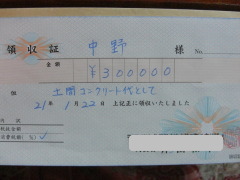 領収証 中野 様 No.
金額
¥300000
但 土間コンクリート代として
21年 1月 22日 上記正に領収いたしました
内訳
税抜金額
消費税額(%)